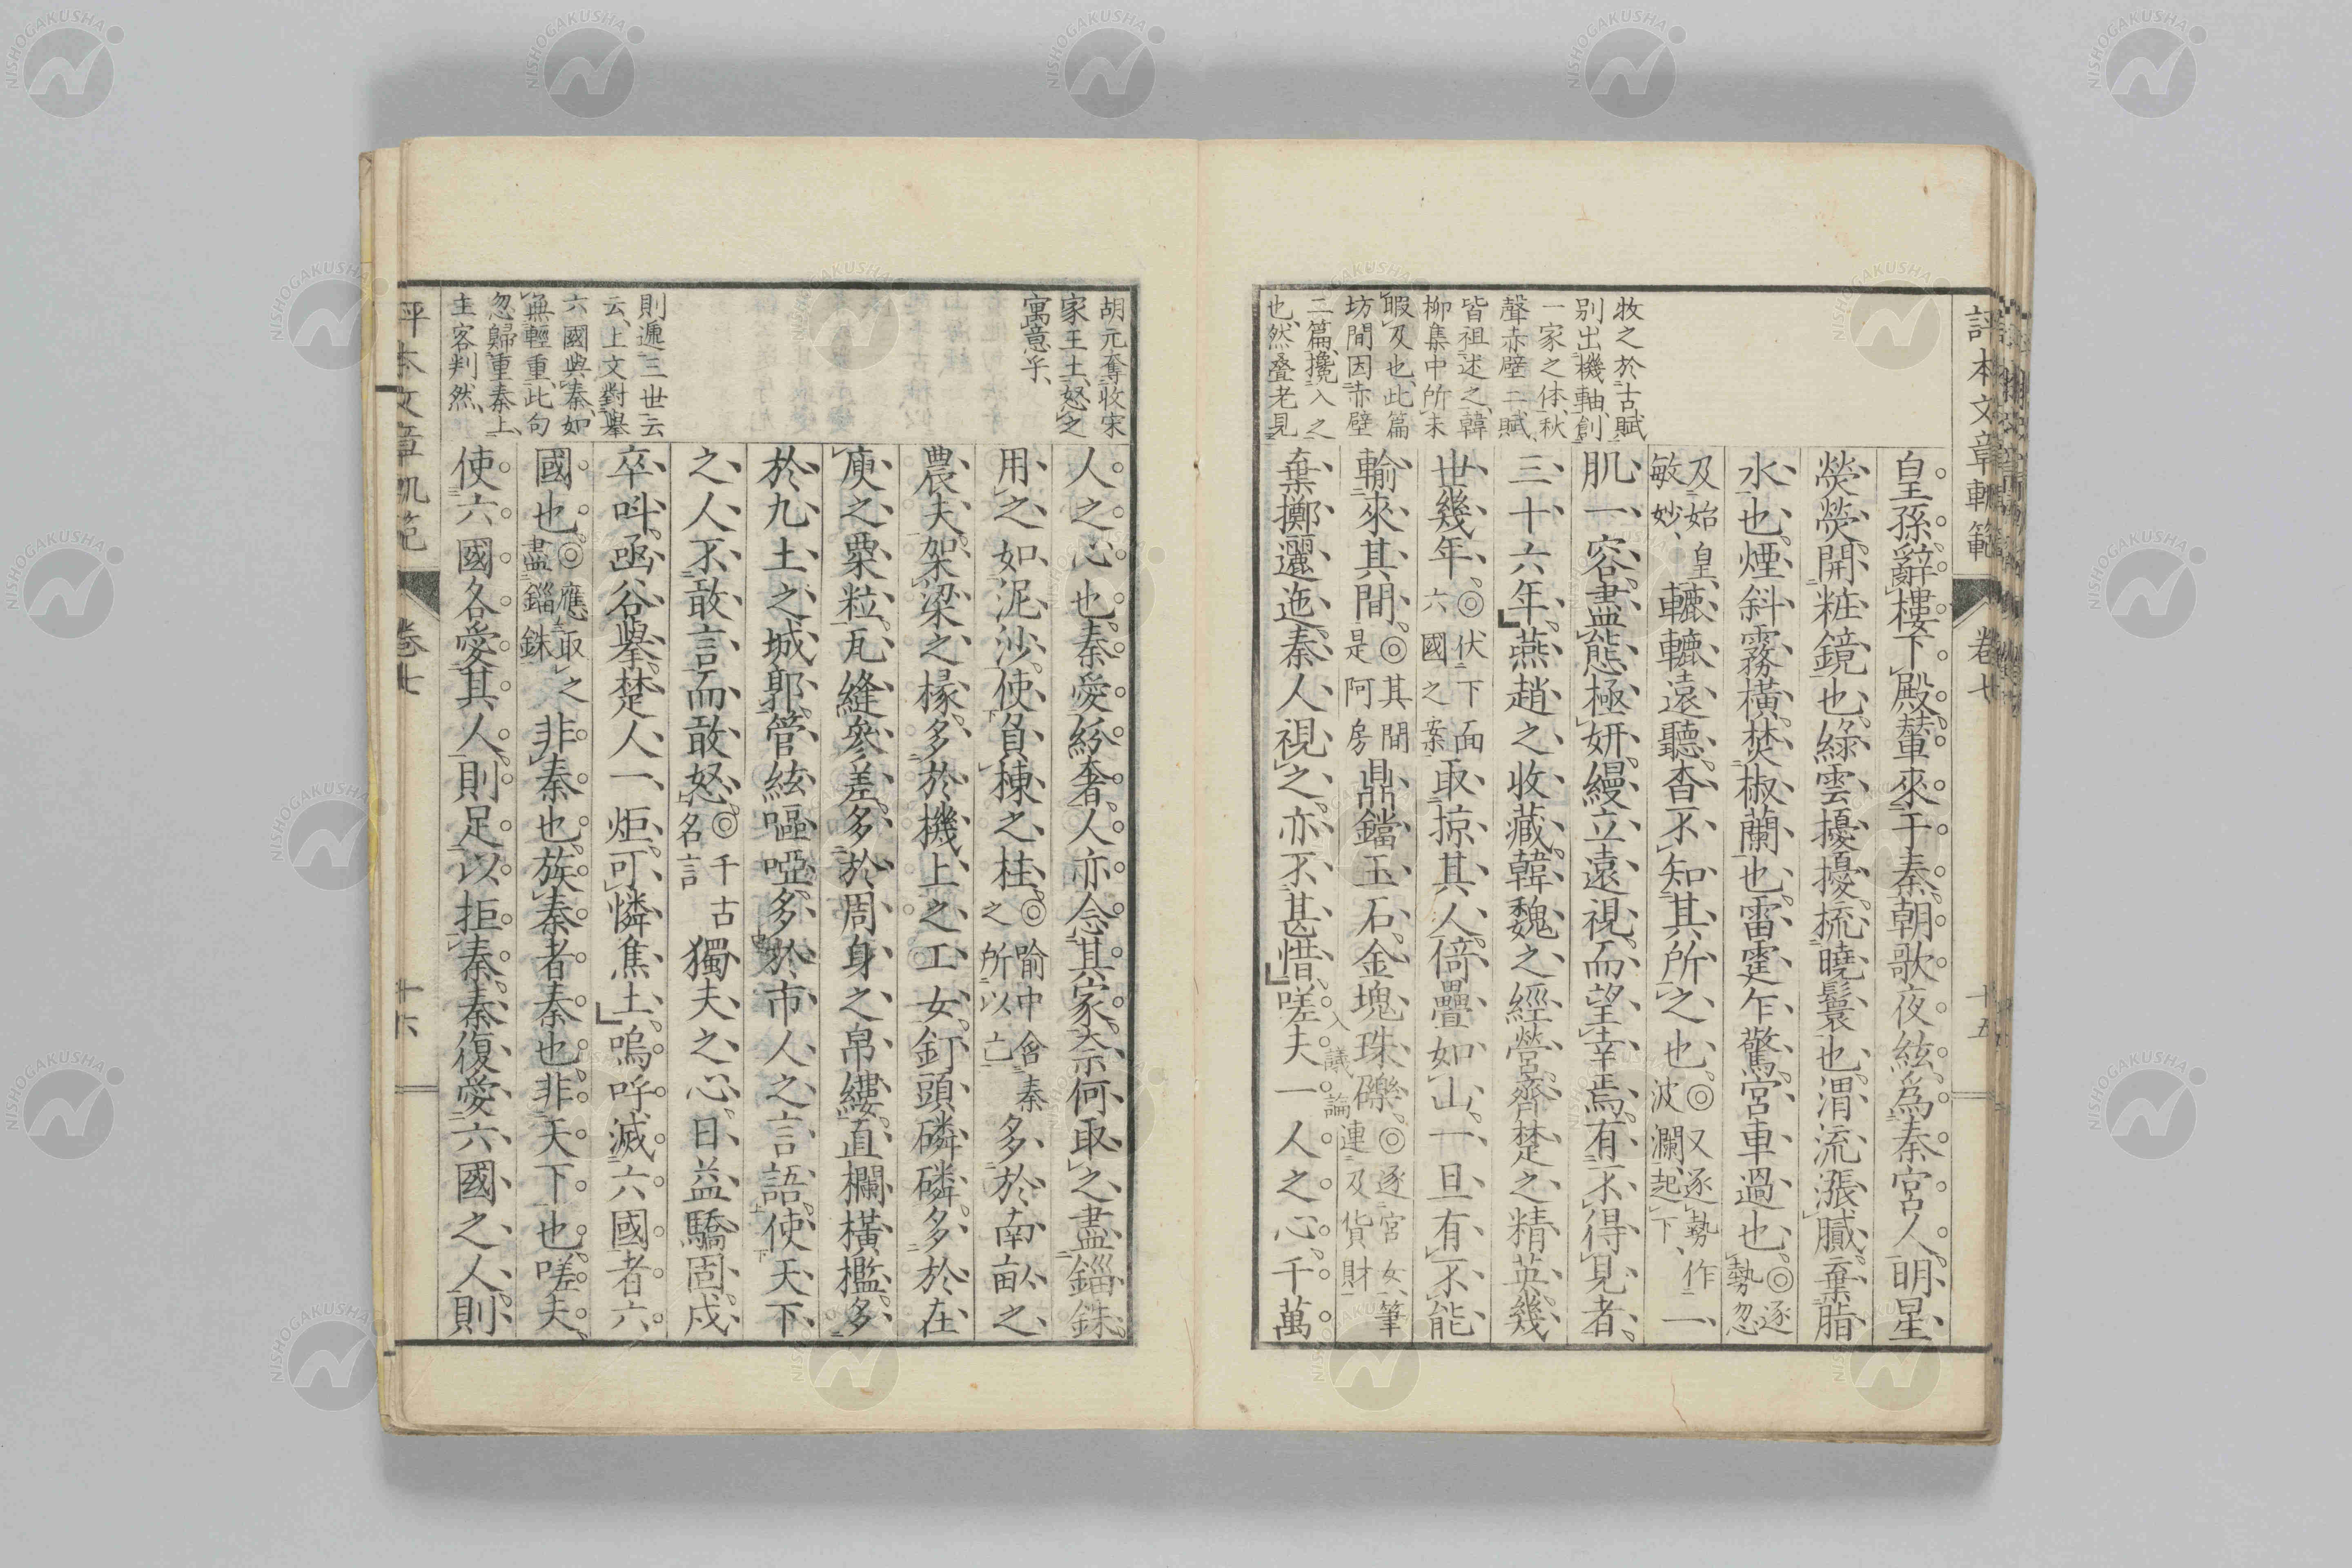 評本文章軌範 卷七 十五
牧之於古賦
別出機軸創
一家之体秋
聲赤壁二賦
皆祖述之韓
柳集中所未
暇及也此篇
坊間因赤壁
二篇攙入之
也然疊老見
皇孫辭樓下殿輦來于秦朝歌夜絃爲秦宮人明星
熒熒開粧鏡也綠雲擾擾梳曉鬟也渭流漲膩棄脂
水也煙斜霧橫焚椒蘭也雷霆乍驚宮車過也◎逐勢忽
及始皇敏妙轆轆遠聽杳不知其所之也◎又逐勢作波瀾起下一
肌一容盡態極妍縵立遠視而望幸焉有不得見者
三十六年燕趙之收藏韓魏之經營齊楚之精英幾
世幾年◎伏下面六國之案取掠其人倚疊如山一旦有不能
輸來其間◎其間是阿房鼎鐺玉石金塊珠礫◎逐宮女筆連及貨財
棄擲邐迤秦人視之亦不甚惜嗟夫一人之心千萬
入議論
胡元奪收宋
家王土怒之
寓意乎
則遞三世云
云上文對舉
六國與秦如
無輕重此句
忽歸重秦上
主客判然
人之心也秦愛紛奢人亦念其家柰何取之盡錙銖
用之如泥沙使負棟之柱◎喻中含秦之所以亡多於南畝之
農夫架梁之椽多於機上之工女釘頭磷磷多於在
庾之粟粒瓦縫參差多於周身之帛縷直欄橫檻多
於九土之城郭管絃嘔啞多於市人之言語使天下
之人不敢言而敢怒◎千古名言獨夫之心日益驕固戍
卒呌函谷擧楚人一炬可憐焦土嗚呼滅六國者六
國也◎應取之盡錙銖非秦也族秦者秦也非天下也嗟夫
使六國各愛其人則足以拒秦秦復愛六國之人則
評本文章軌範 卷七 十六
NISHOGAKUSHA